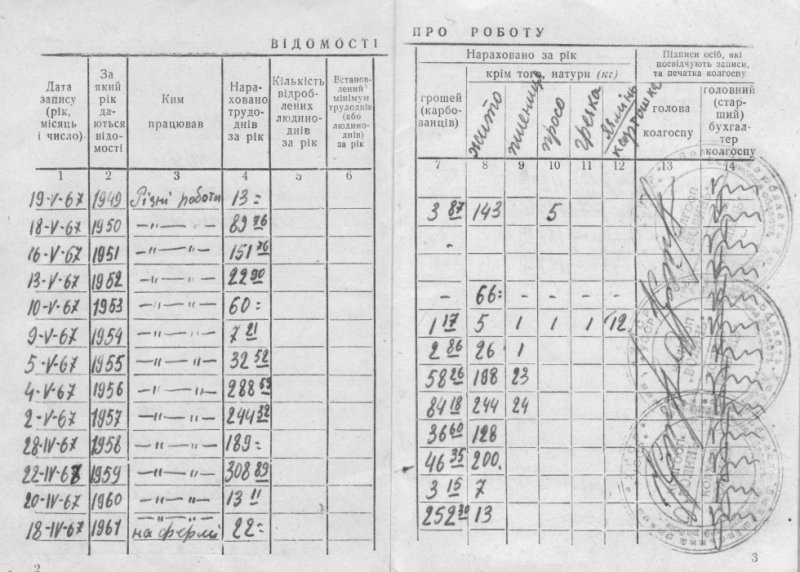 ВІДОМОСТІ ПРО РОБОТУ
Дата запису (рік, місяць і число) За який рік даються відомості Ким працював Нараховано трудоднів за рік Кількість відроблених людиноднів за рік Встановлений мінімум трудоднів (або людиноднів) за рік
Нараховано за рік
Підписи осіб, які посвідчують записи, та печатка колгоспу
грошей (карбованців)
крім того натури (кг)
жито пшениця просо гречка картошка
голова колгоспу
головний (старший) бухгалтер колгоспу
1 2 3 4 5 6 7 8 9 10 11 12 13 14
19-V-67 1949 Різні роботи 13=
18-V-67 1950 —〃—〃— 89 76 3 87 143 5
16-V-67 1951 —〃—〃— 151 76 -
13-V-67 1952 —〃—〃— 22 90
10-V-67 1953 —〃—〃— 60= - 66= - - - -
9-V-67 1954 —〃—〃— 7 21 1 17 5 1 1 1 12
5-V-67 1955 —〃—〃— 32 52 2 86 26 1
4-V-67 1956 —〃—〃— 288 69 58 26 198 23
2-V-67 1957 —〃—〃— 244 32 84 18 244 24
28-IV-67 1958 —〃—〃— 189= 36 60 128
22-IV-67 1959 —〃—〃— 308 89 46 35 200
20-IV-67 1960 —〃—〃— 13 11 3 15 7
18-IV-67 1961 —〃—〃— на фермі 22= 252 30 13
2 3